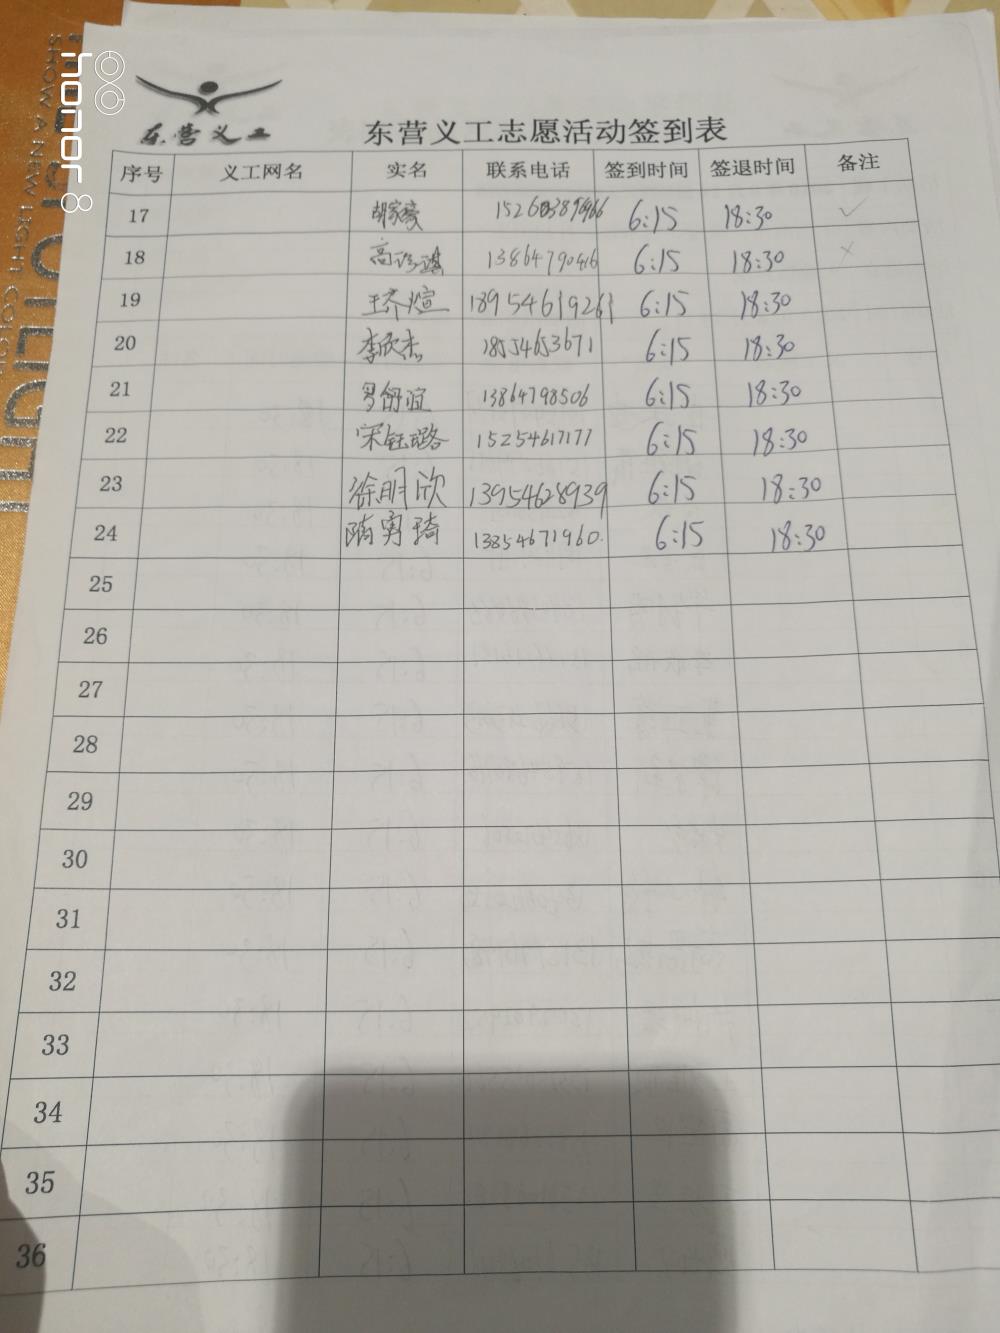 honor 8
SHOW A NEW LIGHT
东营义工
东营义工志愿活动签到表
序号 义工网名 实名 联系电话 签到时间 签退时间 备注
17 胡家豪 6:15 18:30 ✓
18 高 13864790416 6:15 18:30 ×
19 王乔煊 18954619261 6:15 18:30
20 李欣杰 18554653671 6:15 18:30
21 罗舒谊 13864798506 6:15 18:30
22 宋钰璐 15254617177 6:15 18:30
23 徐明欣 13954628939 6:15 18:30
24 隋 琦 13854671960 6:15 18:30
25
26
27
28
29
30
31
32
33
34
35
36